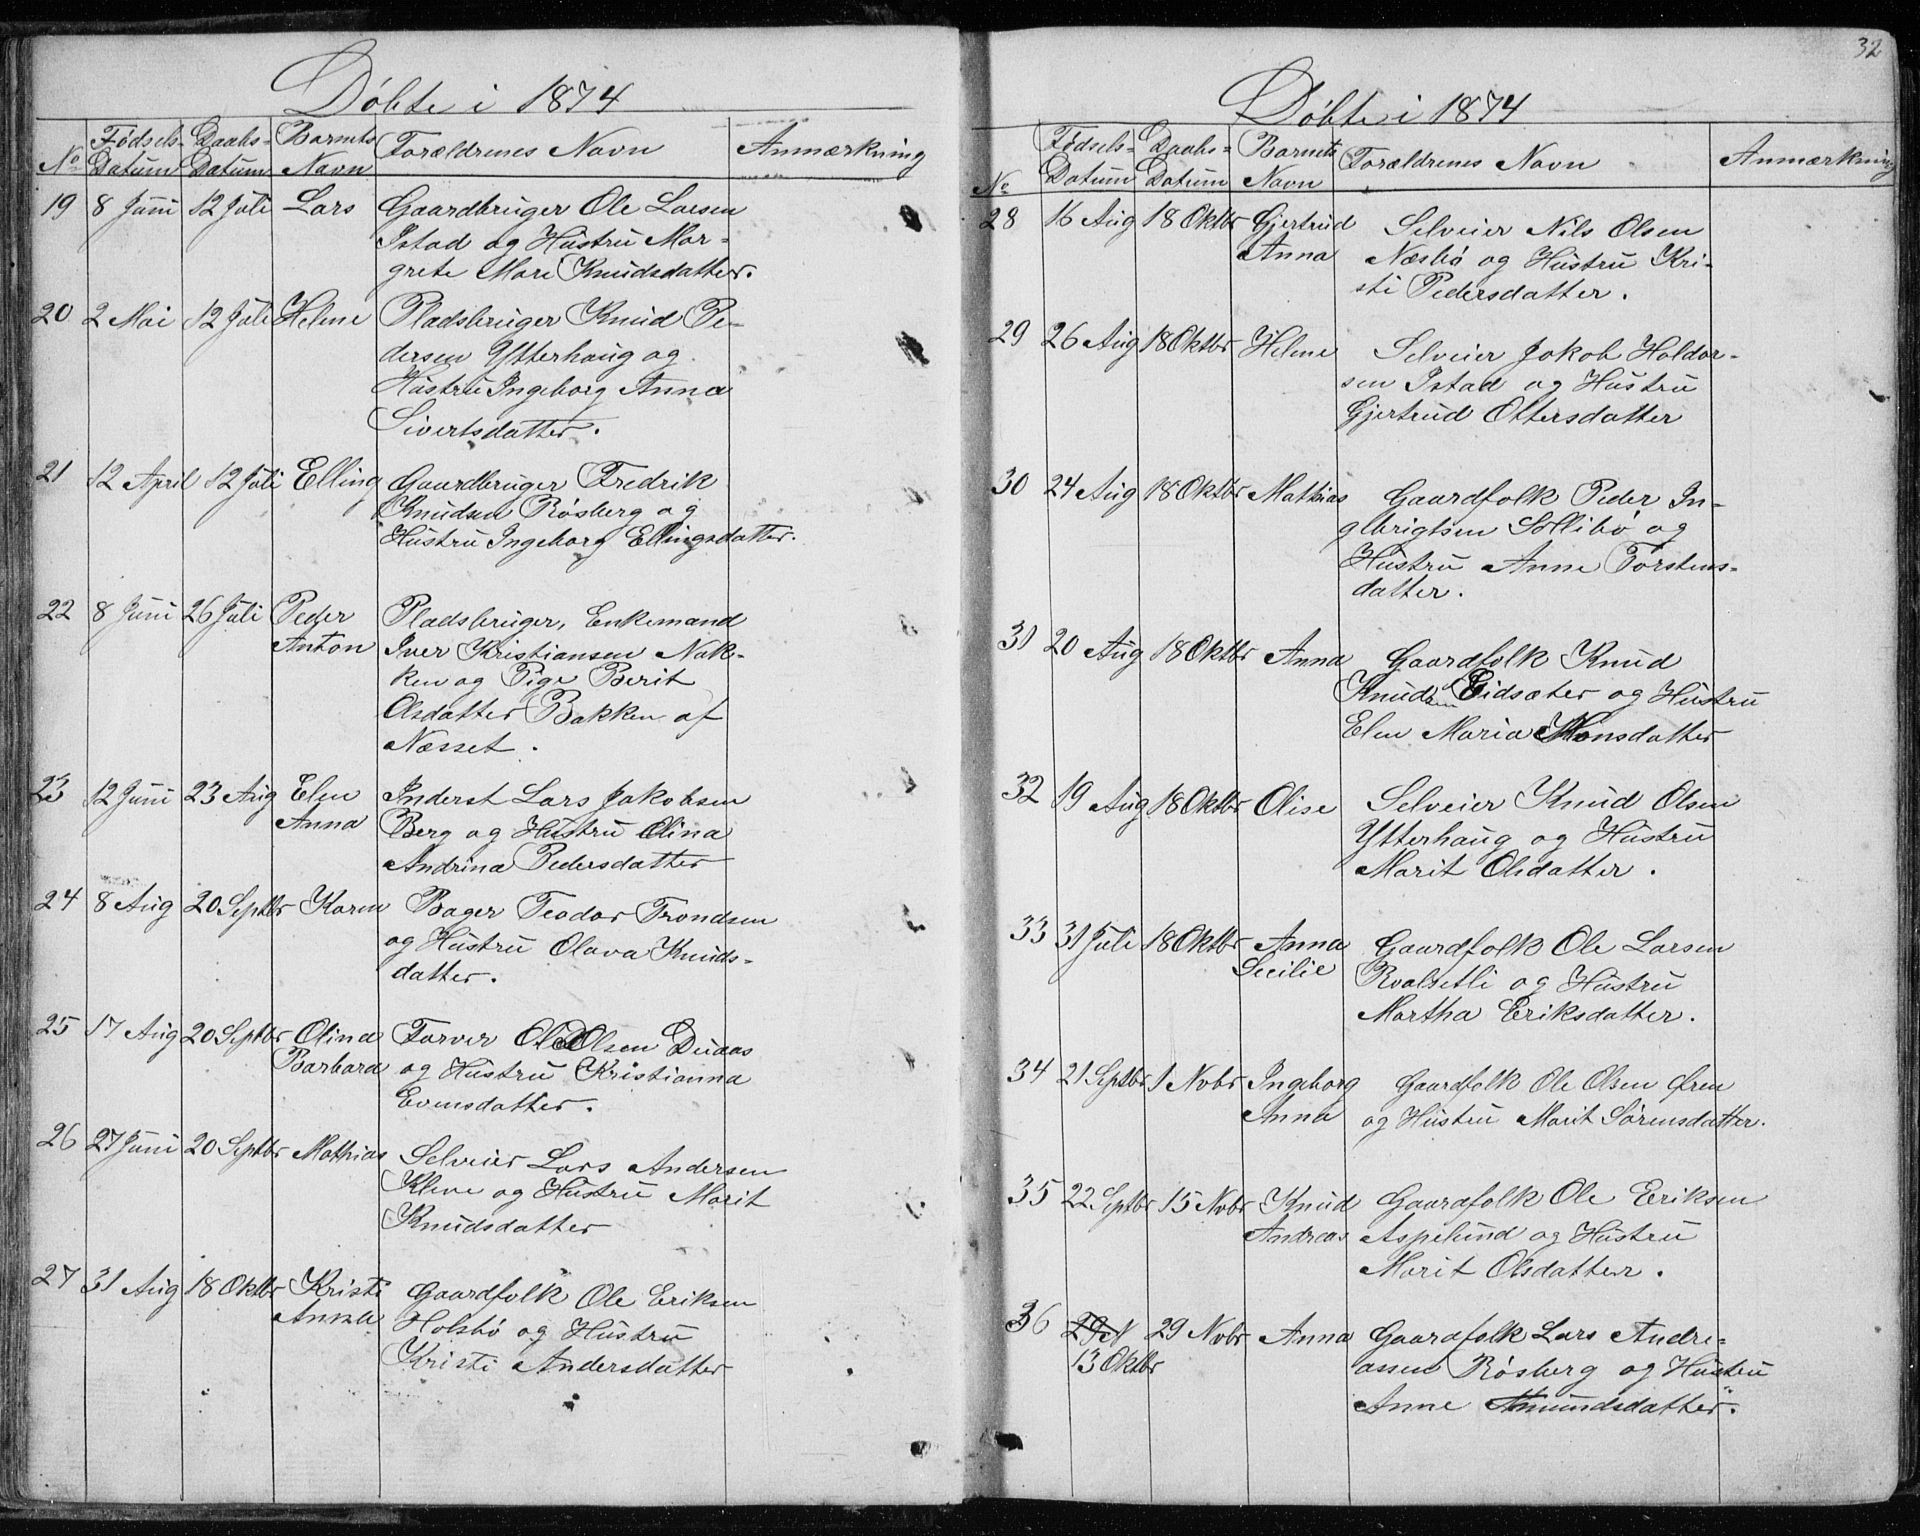 Døbte i 1874
No Fødsels-Datum Daabs-Datum Barnets Navn Forældrenes Navn Anmærkning
19 8 Juni 12 Juli Lars Gaardbruger Ole Larsen
Istad og Hustru Mar-
grete Mari Knudsdatter.
20 2 Mai 12 Juli Helene Pladsbruger Knud Pe-
dersen Ytterhaug og
Hustru Ingeborg Anna
Sivertsdatter.
21 12 April 12 Juli Elling Gaardbruger Fredrik
Knudsen Røsberg og
Hustru Ingeborg Ellingsdatter.
22 8 Juni 26 Juli Peder Pladsbruger, Enkemand
Anton Iver Kristiansen Nak-
ken og Pige Berit
Olsdatter Bakken af
Næsset.
23 12 Juni 23 Aug Elen Inderst Lars Jakobsen
Anna Berg og Hustru Olina
Andrina Pedersdatter
24 8 Aug 20 Septbr Karen Bager Teodor Trondsen
og Hustru Olava Knuds-
datter.
25 17 Aug 20 Septbr Olina Farver Ole Olsen Duaas
Barbara og Hustru Kristianna
Evensdatter.
26 27 Juni 20 Septbr Mathias Selveier Lars Andersen
Kleve og Hustru Marit
Knudsdatter
27 31 Aug 18 Oktbr Kristi Gaardfolk Ole Eriksen
Anna Holsbø og Hustru
Kristi Andersdatter
32
Døbte i 1874
No Fødsels-Datum Daabs-Datum Barnets Navn Forældrenes Navn Anmærkning
28 16 Aug 18 Oktbr Gjertrud Selveier Nils Olsen
Anna Næsbø og Hustru Kri-
sti Pedersdatter.
29 26 Aug 18 Oktbr Helene Selveier Jakob Haldor-
sen Istad og Hustru
Gjertrud Ottersdatter
30 24 Aug 18 Oktbr Mathias Gaardfolk Peder In-
gbrigtsen Sollibø og
Hustru Anne Torstens-
datter.
31 20 Aug 18 Oktbr Anna Gaardfolk Knud
Knudsen Eidsæter og Hustru
Elen Maria Monsdatter
32 19 Aug 18 Oktbr Olise Selveier Knud Olsen
Ytterhaug og Hustru
Marit Olsdatter.
33 31 Juli 18 Oktbr Anna Gaardfolk Ole Larsen
Secilie Roalsetli og Hustru
Martha Eriksdatter.
34 21 Septbr 1 Novbr Ingeborg Gaardfolk Ole Olsen Øren
Anna og Hustru Marit Sørensdatter.
35 22 Septbr 15 Novbr Knud Gaardfolk Ole Eriksen
Andreas Aspelund og Hustru
Marit Olsdatter.
36 29 N 29 Novbr Anna Gaardfolk Lars Andre-
13 Oktbr assen Røsberg og Hustru
Anne Amundsdatter.